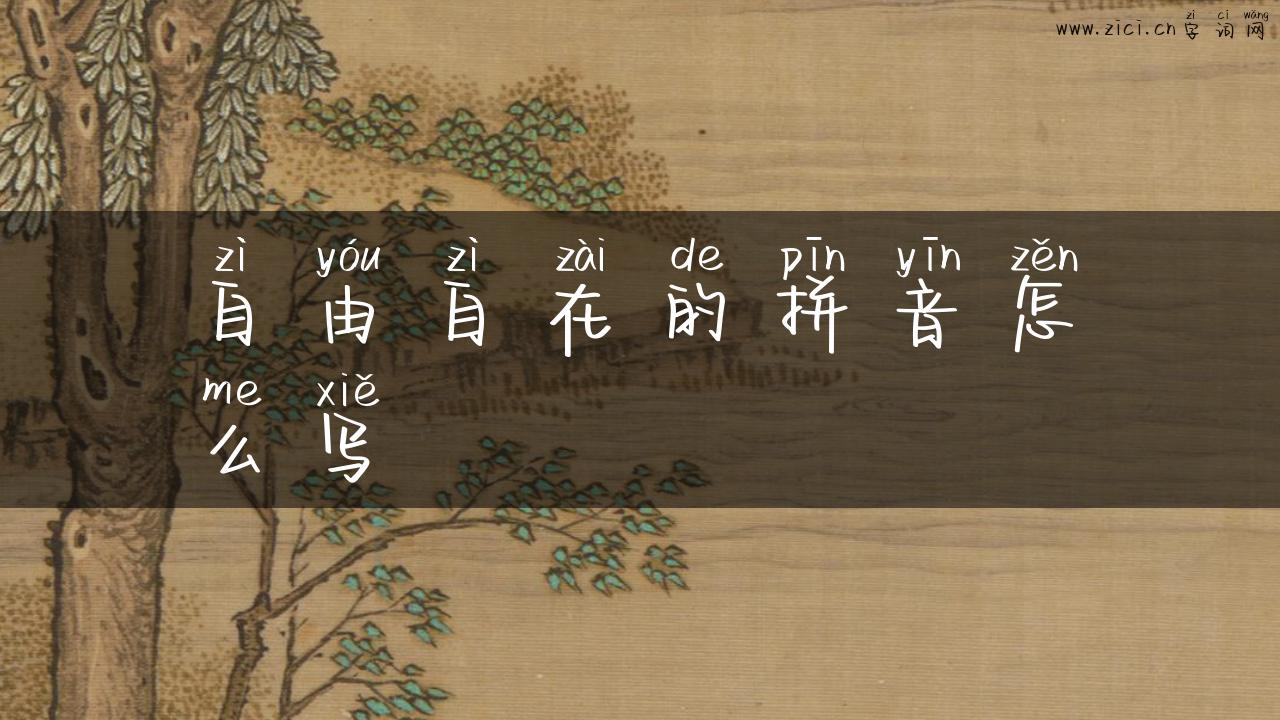 zì cí wǎng
www.zici.cn 字词网
zì yóu zì zài de pīn yīn zěn
自由自在的拼音怎
me xiě
么写